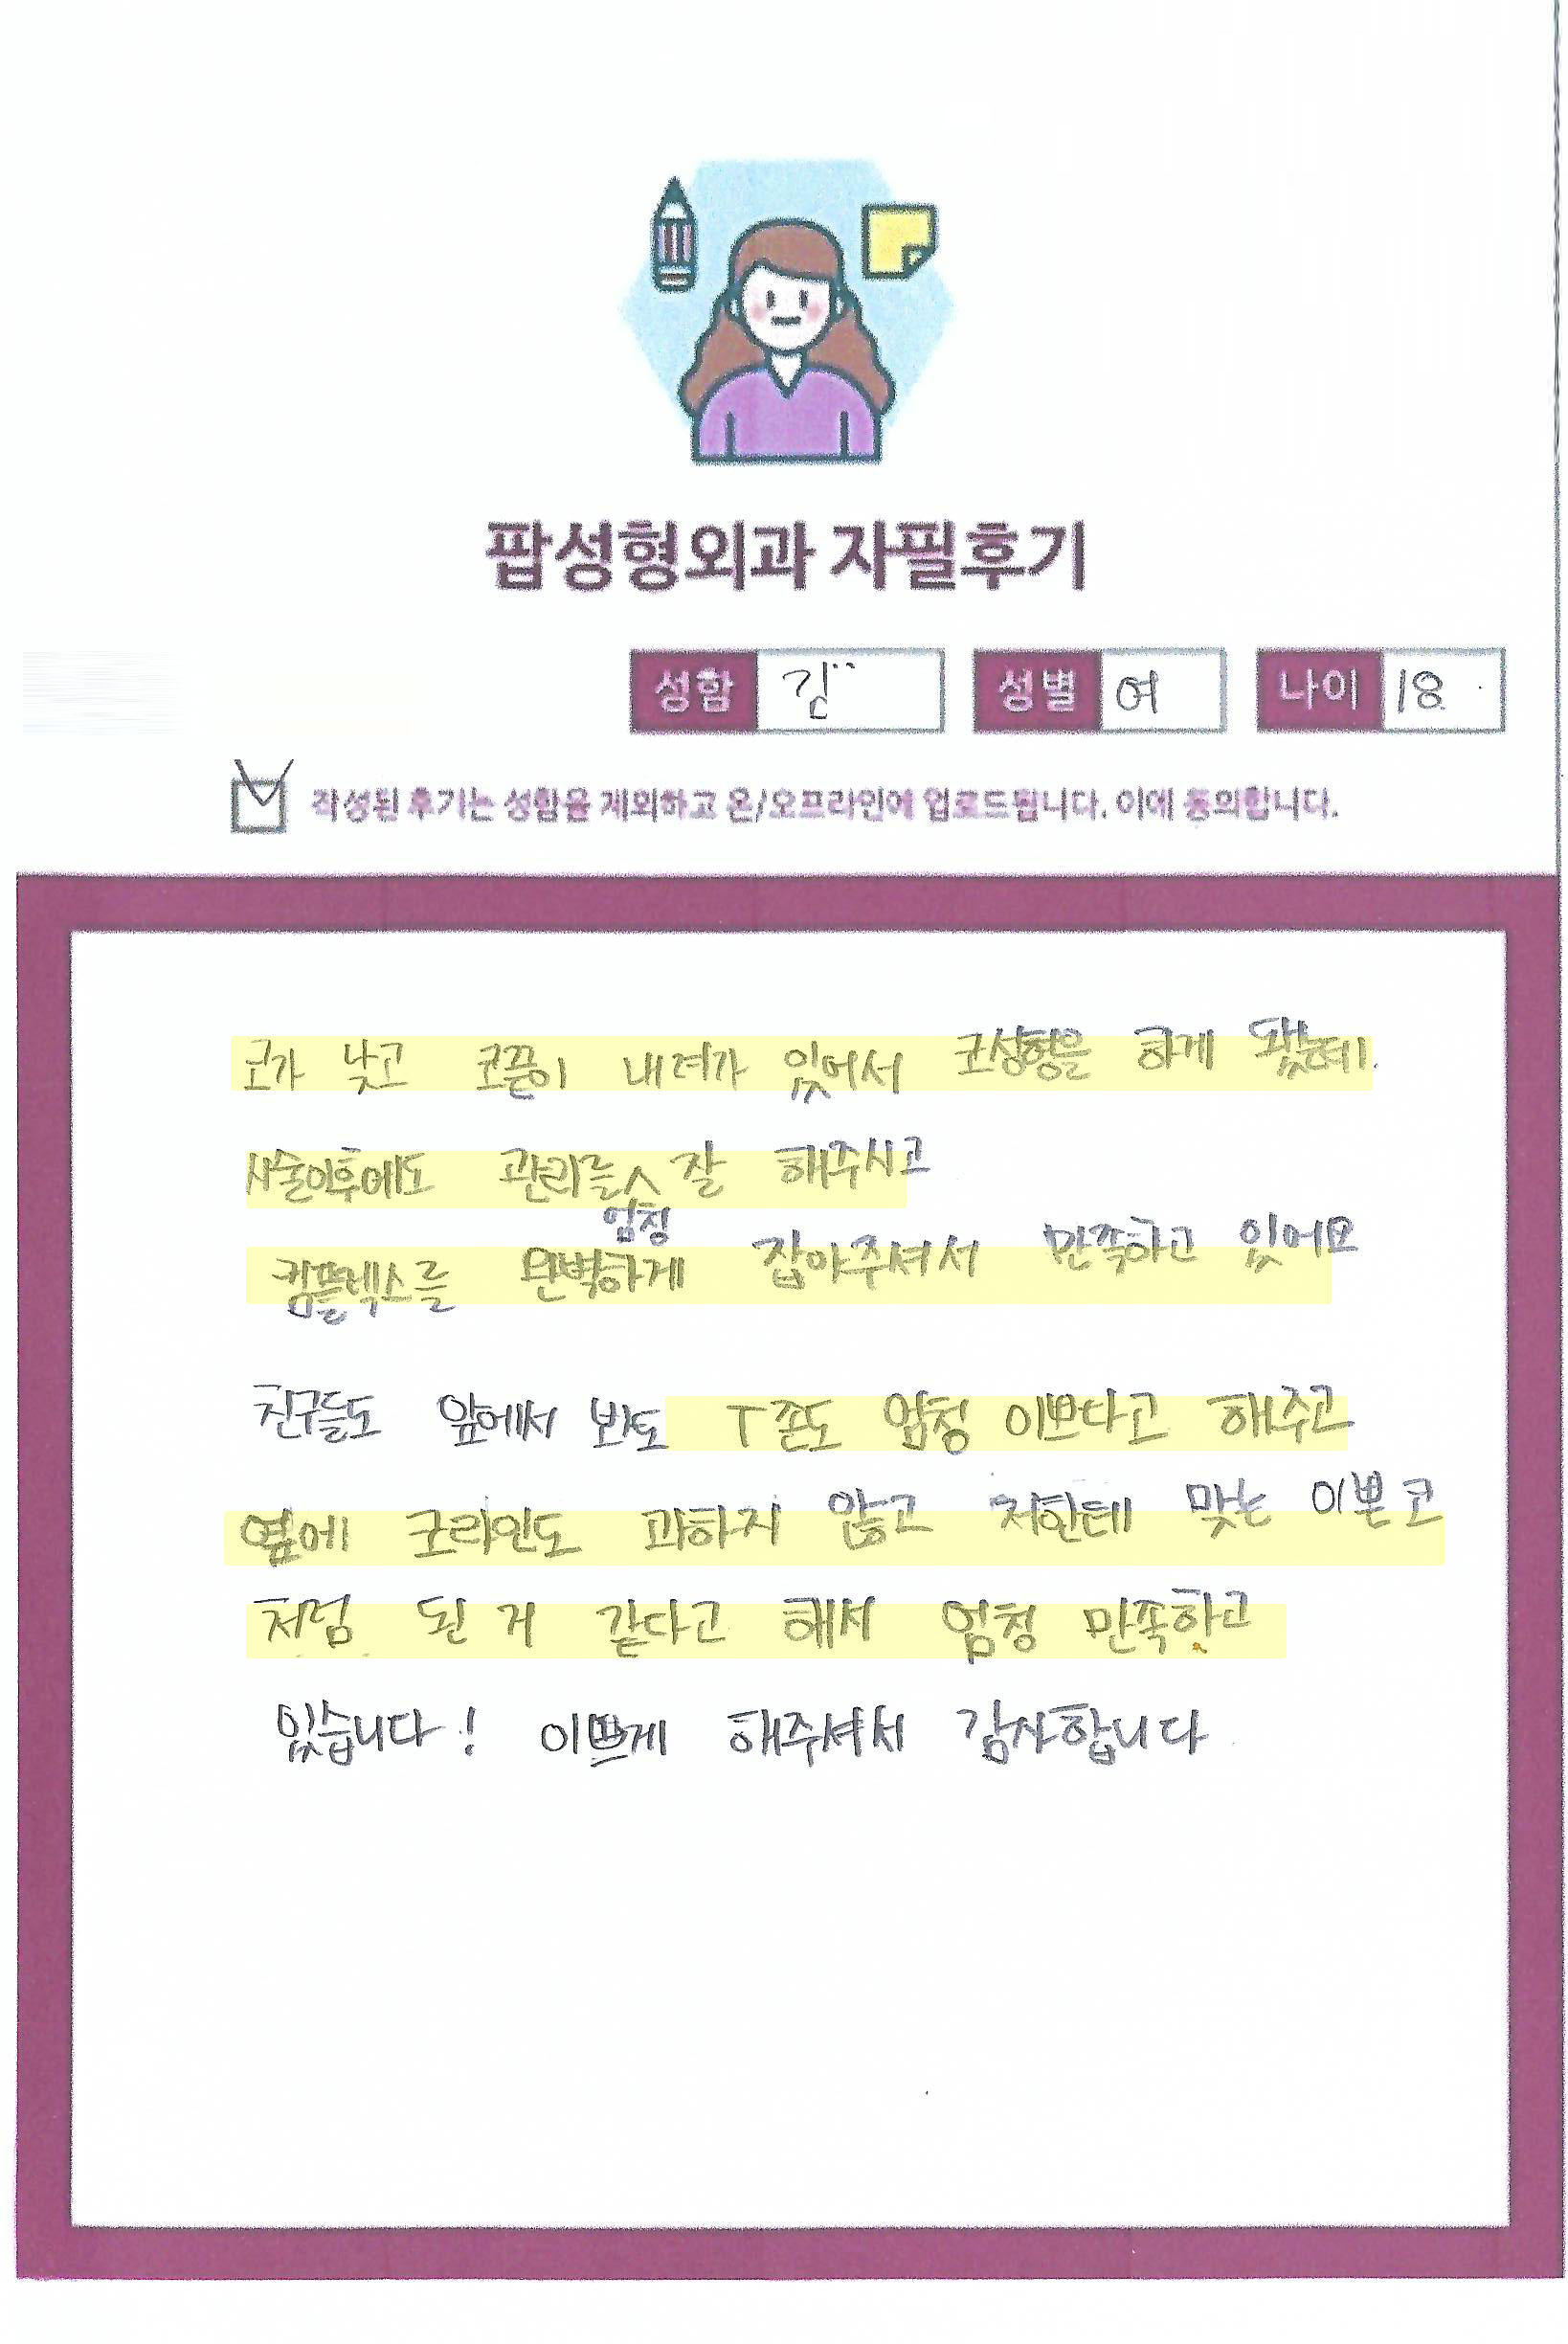 팝성형외과 자필후기
성함 김 성별 여 나이 18
작성된 후기는 성함을 제외하고 온/오프라인에 업로드됩니다. 이에 동의합니다.
코가 낮고 코끝이 내려가 있어서 코성형을 하게 됐는데.
시술이후에도 관리를 엄청 잘 해주시고
컴플렉스를 완벽하게 잡아주셔서 만족하고 있어요
친구들도 앞에서 봐도 T존도 엄청 이쁘다고 해주고
옆에 코라인도 과하지 않고 저한테 맞는 이쁜 코
처럼 된 거 같다고 해서 엄청 만족하고
있습니다! 이쁘게 해주셔서 감사합니다